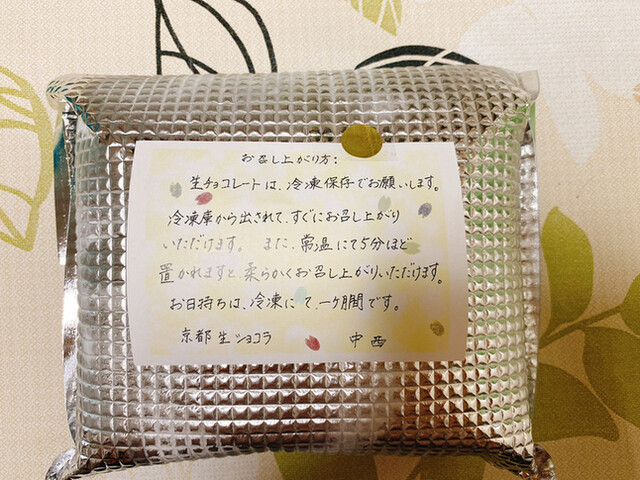 お召し上がり方:
生チョコレートは、冷凍保存でお願いします。
冷凍庫から出されて、すぐにお召し上がり
いただけます。また、常温にて5分ほど
置かれますと柔らかくお召し上がりいただけます。
お日持ちは、冷凍にて、一ヶ月間です。
京都生ショコラ 中西